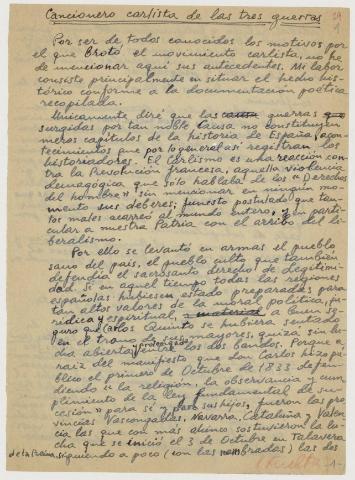 Cancionero carlista de las tres guerras
1
Por ser de todos conocidos los motivos por
el que brotó el movimiento carlista, no he
de mencionar aquí sus antecedentes. Mi labor
consiste principalmente en situar el hecho his-
tórico conforme a la documentación poética
recopilada.
Unicamente diré que las causa guerras que
surgidas por tan noble Causa no constituyen
meros capítulos de la historia de España, acon-
tecimientos que por lo general así registran los
historiadores. El carlismo es una reacción con-
tra la Revolución francesa, aquella violencia
demagógica que sólo hablaba de los «Derechos
del hombre» sin mencionar en ningún mo-
mento sus deberes; funesto postulado que tan-
tos males acarreó al mundo entero, y en parti-
cular a nuestra Patria con el arribo del li-
beralismo.
Por ello se levantó en armas el pueblo
sano del país, el pueblo culto que también
defendía el sacrosanto derecho de legitimi-
dad. Si en aquel tiempo todas las regiones
españolas hubiesen estado preparadas para
tan altos valores de la moral política, ju-
rídica y espiritual, material a buen se-
guro que Carlos Quinto se hubiera sentado
en el trono de sus mayores, quizá sin lu-
cha abierta, prolongada entre los dos bandos. Porque a
raíz del manifiesto que Don Carlos hizo pú-
blico el primero de Octubre de 1833 defen-
diendo «a la religión, la observancia y cum-
plimiento de la ley fundamental de su-
cesión» para sí y para sus hijos, fueron las pro-
vincias Vascongadas, Navarra, Cataluña y Valen-
cia las que con más ahinco sostuvieron la lu-
cha que se inició el 3 de Octubre en Talavera
de la Reina, siguiendo a poco (con las nombradas) las dos
-1-